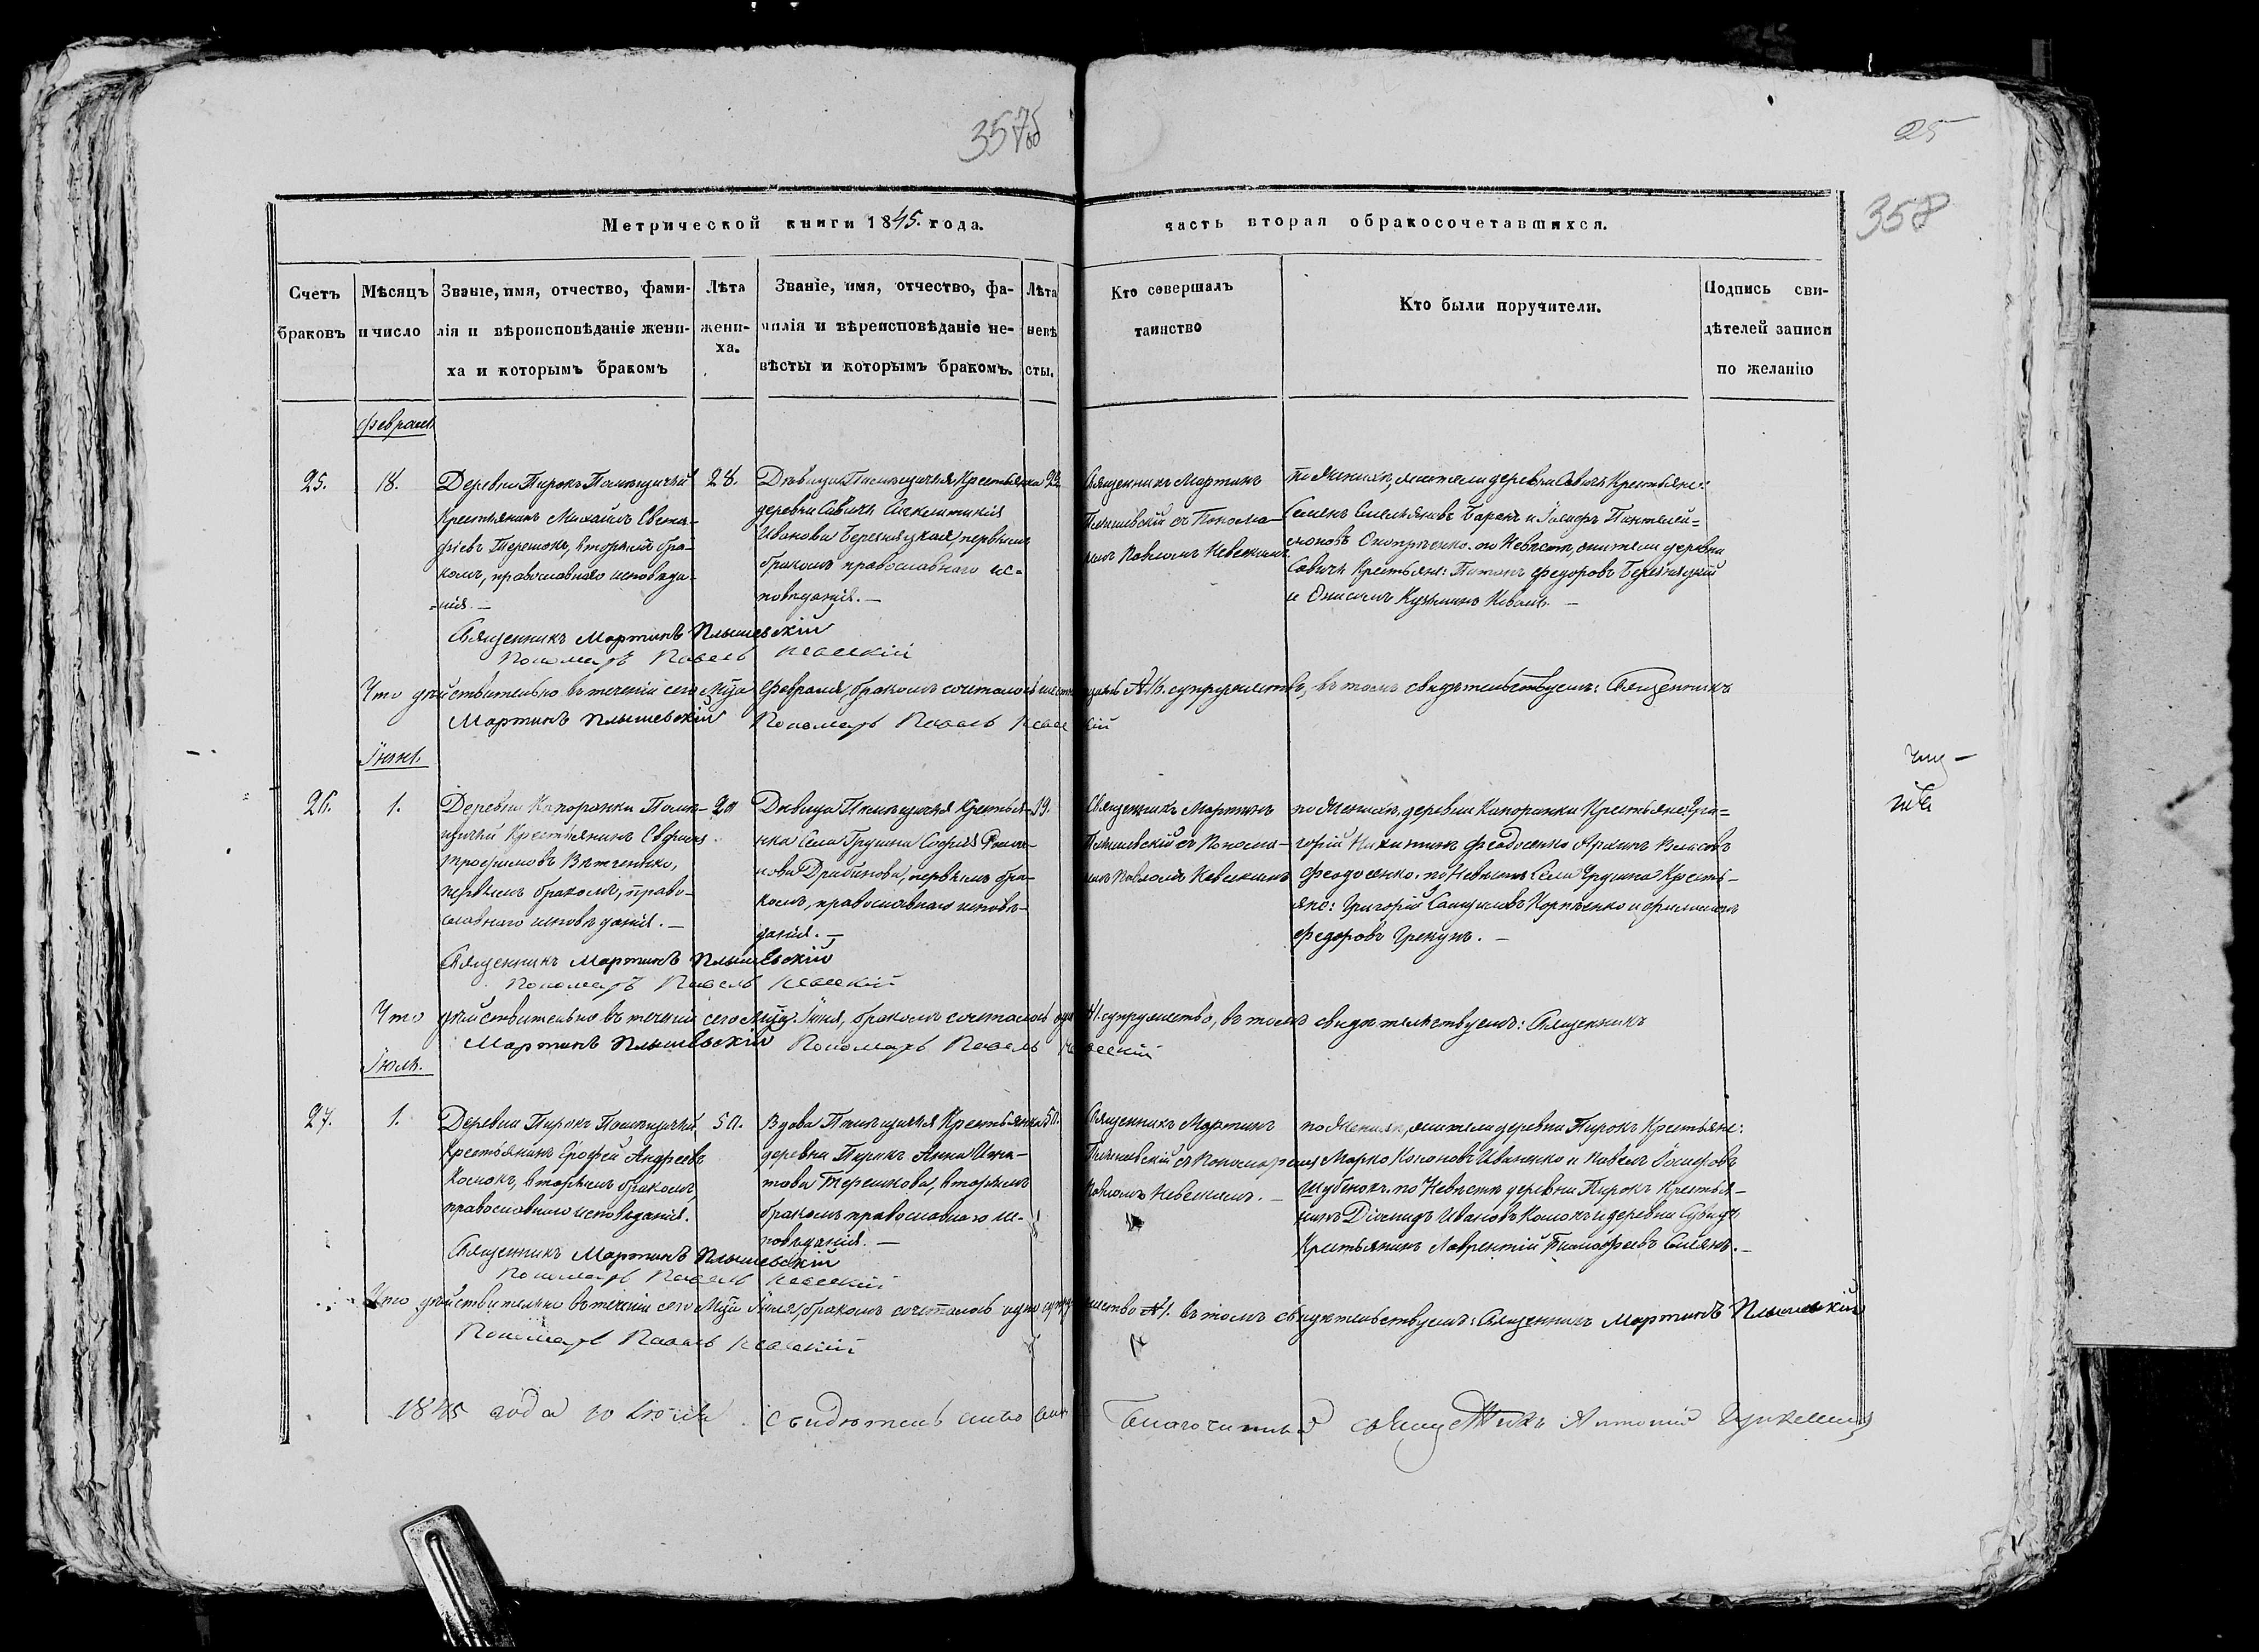 357об
25
358
Метрической книги 1845. года.
часть вторая обракосочетавшихся.
Счетъ браковъ
Мѣсяцъ и число
Званіе, имя, отчество, фами-
лія и вѣроисповѣданіе жени-
ха и которымъ бракомъ
Лѣта
жени-
ха.
Званіе, имя, отчество, фа-
милія и вѣроисповѣданіе не-
вѣсты и которымъ бракомъ.
Лѣта
невѣ
сты.
Кто совершалъ
таинство
Кто были поручители.
Подпись сви-
дѣтелей записи
по желанію
Февраль
25.
18.
Деревни Пирокъ Помѣщичій
Крестьянинъ Михаилъ Евста-
фіевъ Терешокъ, вторымъ бра-
комъ, православнаго исповѣда-
нія. —
28.
Дѣвица Помѣщичья Крестьянка
деревни Савичь
Иванова первымъ
бракомъ православнаго ис-
повѣданія. —
Священникъ Мартинъ
Плышевскій съ Понома-
ремъ Павломъ
по Женихѣ, жители деревни Савичь Крестьяне:
Семенъ Емельяновъ Баранъ и Іосифъ Пантелей-
моновъ по Невѣстѣ, жители деревни
Савичь Крестьяне: Федоровъ
и Онисимъ Кузьминъ Коваль. —
Священникъ Мартинъ Плышевскій
Пономарь Павелъ
Что дѣйствительно въ теченіи сего Мѣца Февраля, бракомъ сочеталось супружествъ, въ томъ свидѣтельствуемъ: Священникъ
Мартинъ Плышевскій Пономарь Павелъ
Іюнь.
26.
1.
Деревни Капоранки Помѣ-
щичій Крестьянинъ Евфимъ
Трофимовъ
первымъ бракомъ, право-
славнаго исповѣданія. —
20
Дѣвица Помѣщичья Крестья-
нка Села Грушна Софія Рома-
нова Дрибинова, первымъ бра-
комъ, православнаго исповѣ-
данія. —
19.
Священникъ Мартинъ
Плышевскій съ Понома-
ремъ Павломъ
по Женихѣ, деревни Капоранки Крестьяне: Гри-
горій Никитинъ Феодосенко Архипъ Власовъ
Феодосенко. по Невѣстѣ Села Грушна Кресть-
яне: Григорій Самуиловъ и Филимонъ
Федоровъ —
Священникъ Мартинъ Плышевскій
Пономарь Павелъ
Что дѣйствительно въ теченіи сего Мѣца Іюня, бракомъ сочеталось одно №1. супружество, въ томъ свидѣтельствуемъ: Священникъ
Мартинъ Плышевскій Пономарь Павелъ
Іюль.
27.
1.
Деревни Пирокъ Помѣщичій
Крестьянинъ Ерофей Андреевъ
вторымъ бракомъ
православнаго исповѣданія.
50.
Вдова Помѣщичья Крестьянка
деревни Пирокъ Анна Игна-
това Терешкова, вторымъ
бракомъ православнаго ис-
повѣданія. —
50.
Священникъ Мартинъ
Плышевскій съ Пономаремъ
Павломъ —
по Женихѣ, жители деревни Пирокъ Крестьяне:
Марко Кононовъ Иваненко и Павелъ Іосифовъ
Шубенокъ. по Невѣстѣ деревни Пирокъ Крестья-
нинъ Діомидъ Ивановъ и деревни
Крестьянинъ Лаврентій Тимофеевъ —
Священникъ Мартинъ Плышевскій
Пономарь Павелъ
Что дѣйствительно въ теченіи сего Мѣца Іюля, бракомъ сочеталось одно супружество №1. въ томъ свидѣтельствуемъ: Священникъ Мартинъ Плышевскій
Пономарь Павелъ
1845 года 10 Іюля свидѣтельствовалъ Благочинный Священникъ Антоній